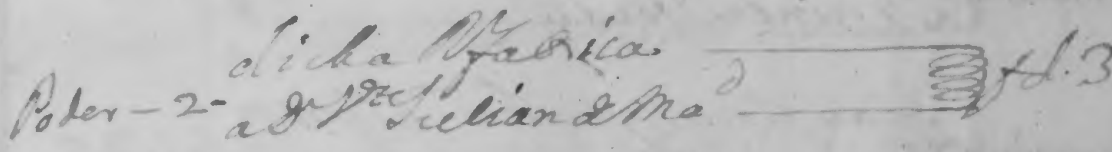 dicha Rl fabrica
Poder - 2 - a Dn Vte Julian de Mad fl. 3